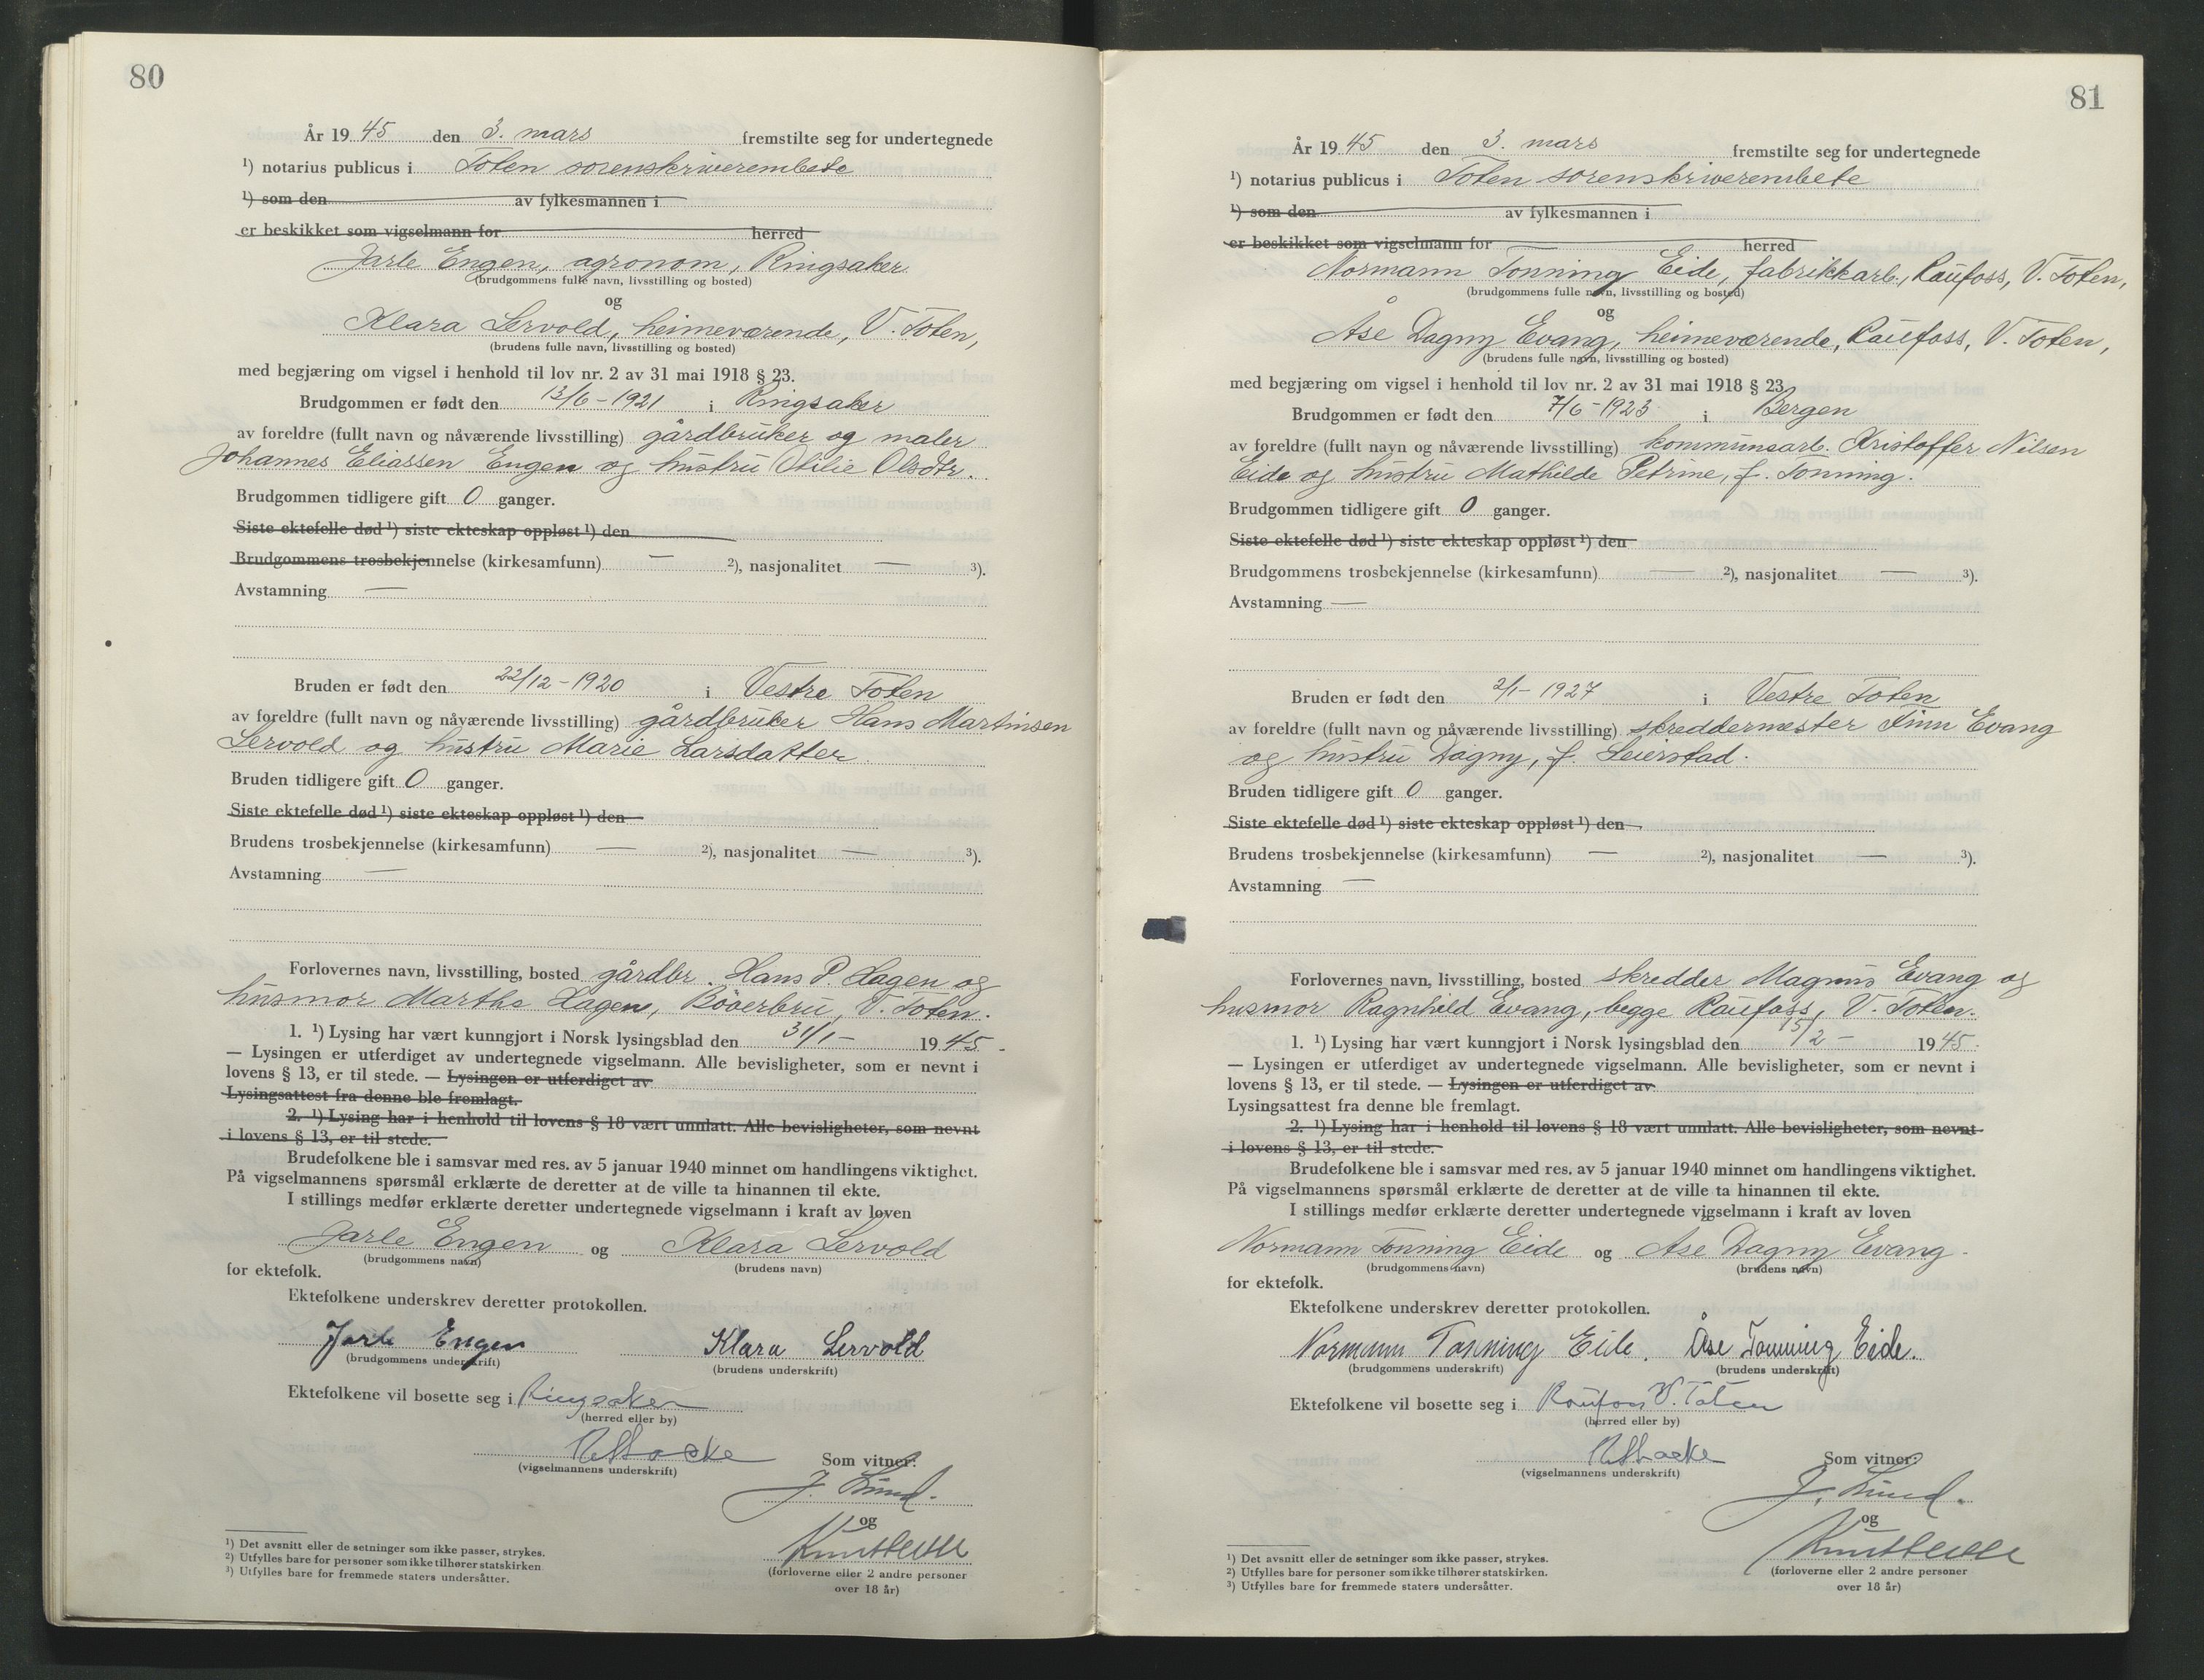 80
År 19 45 den 3. mars fremstilte seg for undertegnede
¹) notarius publicus i Toten sorenskriverembete
¹) som den av fylkesmannen i
er beskikket som vigselmann for herred
Jarle Engen, agronom, Ringsaker
(brudgommens fulle navn, livsstilling og bosted)
og
Klara Lervold, heimeværende, V. Toten,
(brudens fulle navn, livsstilling og bosted)
med begjæring om vigsel i henhold til lov nr. 2 av 31 mai 1918 § 23.
Brudgommen er født den 13/6-1921 i Ringsaker
av foreldre (fullt navn og nåværende livsstilling) gårdbruker og maler
Johannes Eliassen Engen og hustru Otilie Olsdtr.
Brudgommen tidligere gift 0 ganger.
Siste ektefelle død ¹) siste ekteskap oppløst ¹) den
Brudgommens trosbekjennelse (kirkesamfunn) — ²), nasjonalitet — ³).
Avstamning —
Bruden er født den 22/12-1920 i Vestre Toten
av foreldre (fullt navn og nåværende livsstilling) gårdbruker Hans Martinsen
Lervold og hustru Marie Larsdatter.
Bruden tidligere gift 0 ganger.
Siste ektefelle død ¹) siste ekteskap oppløst ¹) den
Brudens trosbekjennelse (kirkesamfunn) — ²), nasjonalitet — ³).
Avstamning —
Forlovernes navn, livsstilling, bosted gårdbr. Hans P. Hagen og
husmor Marthe Hagen, Bøverbru, V. Toten.
1. ¹) Lysing har vært kunngjort i Norsk lysingsblad den 31/1- 19 45.
— Lysingen er utferdiget av undertegnede vigselmann. Alle bevisligheter, som er nevnt i
lovens § 13, er til stede. — Lysingen er utferdiget av
Lysingsattest fra denne ble fremlagt.
2. ¹) Lysing har i henhold til lovens § 18 vært unnlatt. Alle bevisligheter, som nevnt
i lovens § 13, er til stede.
Brudefolkene ble i samsvar med res. av 5 januar 1940 minnet om handlingens viktighet.
På vigselmannens spørsmål erklærte de deretter at de ville ta hinannen til ekte.
I stillings medfør erklærte deretter undertegnede vigselmann i kraft av loven
Jarle Engen og Klara Lervold
(brudgommens navn) (brudens navn)
for ektefolk.
Ektefolkene underskrev deretter protokollen.
Jarle Engen Klara Lervold
(brudgommens underskrift) (brudens underskrift)
Ektefolkene vil bosette seg i Ringsaker
(herred eller by)
(vigselmannens underskrift) Som vitner:
J. Lund.
og
(forloverne eller 2 andre personer
over 18 år)
¹) Det avsnitt eller de setninger som ikke passer, strykes.
²) Utfylles bare for personer som ikke tilhører statskirken
³) Utfylles bare for fremmede staters undersåtter.
81
År 19 45 den 3. mars fremstilte seg for undertegnede
¹) notarius publicus i Toten sorenskriverembete
¹) som den av fylkesmannen i
er beskikket som vigselmann for herred
Normann Tonning Eide, fabrikkarb., Raufoss, V. Toten,
(brudgommens fulle navn, livsstilling og bosted)
og
Åse Dagny Evang, heimeværende, Raufoss, V. Toten,
(brudens fulle navn, livsstilling og bosted)
med begjæring om vigsel i henhold til lov nr. 2 av 31 mai 1918 § 23.
Brudgommen er født den 7/6-1923 i Bergen
av foreldre (fullt navn og nåværende livsstilling) kommunearb. Kristoffer Nilsen
Eide og hustru Mathilde Petrine, f. Tonning.
Brudgommen tidligere gift 0 ganger.
Siste ektefelle død ¹) siste ekteskap oppløst ¹) den
Brudgommens trosbekjennelse (kirkesamfunn) — ²), nasjonalitet — ³).
Avstamning —
Bruden er født den 2/1-1927 i Vestre Toten
av foreldre (fullt navn og nåværende livsstilling) skreddermester Finn Evang
og hustru Dagny, f. Leierstad.
Bruden tidligere gift 0 ganger.
Siste ektefelle død ¹) siste ekteskap oppløst ¹) den
Brudens trosbekjennelse (kirkesamfunn) — ²), nasjonalitet — ³).
Avstamning —
Forlovernes navn, livsstilling, bosted skredder Magnus Evang og
husmor Ragnhild Evang, begge Raufoss, V. Toten.
1. ¹) Lysing har vært kunngjort i Norsk lysingsblad den 15/2- 19 45.
— Lysingen er utferdiget av undertegnede vigselmann. Alle bevisligheter, som er nevnt i
lovens § 13, er til stede. — Lysingen er utferdiget av
Lysingsattest fra denne ble fremlagt.
2. ¹) Lysing har i henhold til lovens § 18 vært unnlatt. Alle bevisligheter, som nevnt
i lovens § 13, er til stede.
Brudefolkene ble i samsvar med res. av 5 januar 1940 minnet om handlingens viktighet.
På vigselmannens spørsmål erklærte de deretter at de ville ta hinannen til ekte.
I stillings medfør erklærte deretter undertegnede vigselmann i kraft av loven
Normann Tonning Eide og Åse Dagny Evang
(brudgommens navn) (brudens navn)
for ektefolk.
Ektefolkene underskrev deretter protokollen.
Normann Tonning Eide. Åse Tonning Eide.
(brudgommens underskrift) (brudens underskrift)
Ektefolkene vil bosette seg i Raufoss V. Toten
(herred eller by)
(vigselmannens underskrift) Som vitner:
J. Lund.
og
(forloverne eller 2 andre personer
over 18 år)
¹) Det avsnitt eller de setninger som ikke passer, strykes.
²) Utfylles bare for personer som ikke tilhører statskirken.
³) Utfylles bare for fremmede staters undersåtter.